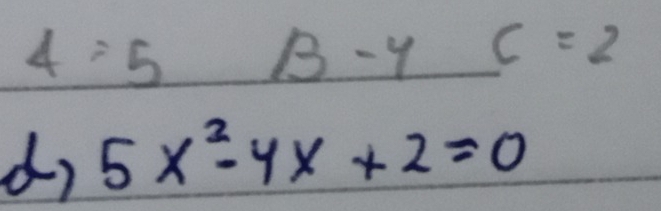 A = 5 B - 4 C = 2
d) 5x² - 4x + 2 = 0